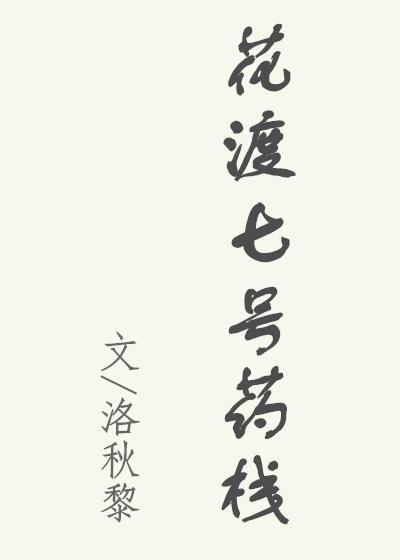 花渡七号药栈
文/洛秋黎